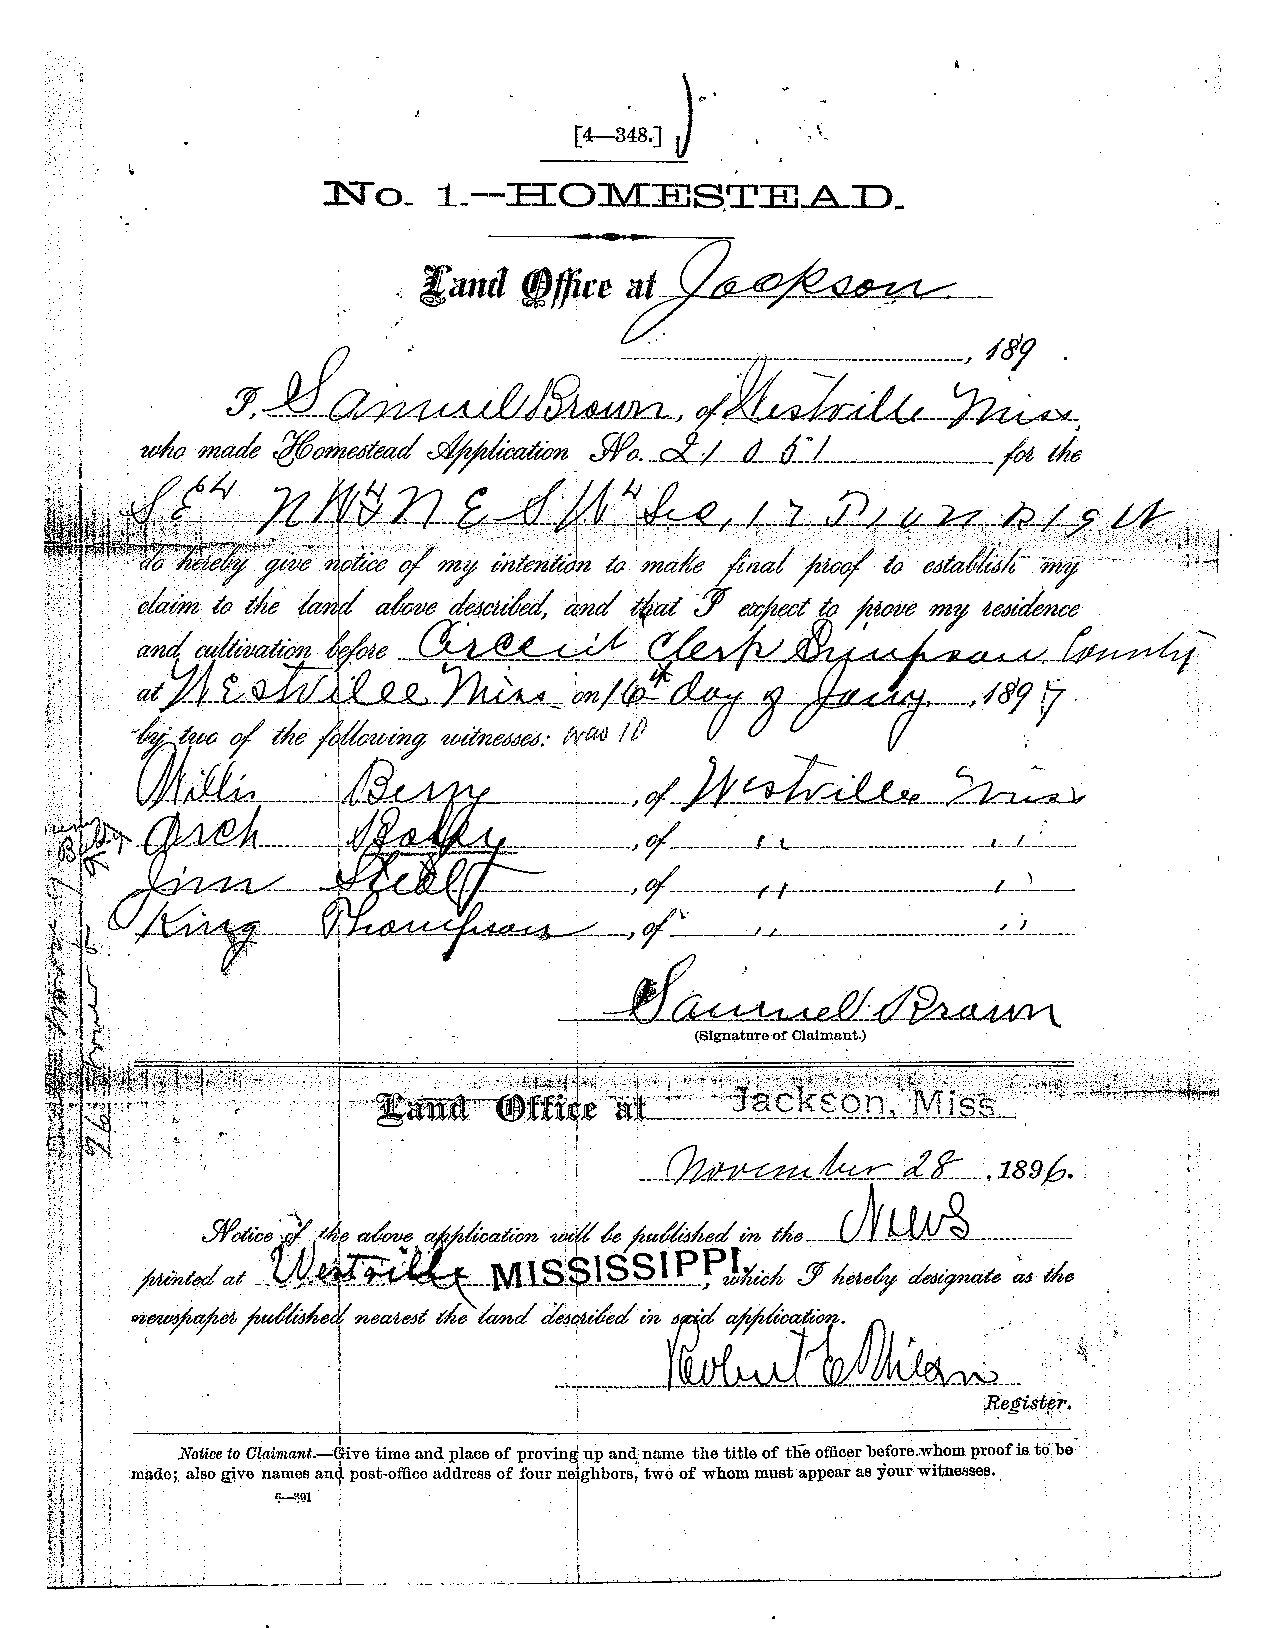 [4—348.]
No. 1.—HOMESTEAD.
Land Office at Jackson
, 189 .
I, Samuel Brown, of Westville Miss,
who made Homestead Application No. 21051 for the
SE4 NW4 & NE SW4 Sec, 17 T, 10 N R 19 W
do hereby give notice of my intention to make final proof to establish my
claim to the land above described, and that I expect to prove my residence
and cultivation before Circuit Clerk Simpson County
at Westville Miss on 16th day of Jany. , 1897
by two of the following witnesses:
Willis Berry , of Westville Miss
Arch , of " "
Jim , of " "
King Thompson , of " "
Samuel Brown
(Signature of Claimant.)
Land Office at Jackson, Miss
November 28 , 1896.
Notice of the above application will be published in the News
printed at Westville MISSISSIPPI, which I hereby designate as the
newspaper published nearest the land described in said application.
Robert E Wilson
Register.
Notice to Claimant.—Give time and place of proving up and name the title of the officer before whom proof is to be
made; also give names and post-office address of four neighbors, two of whom must appear as your witnesses.
6—391